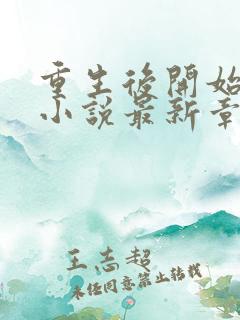 重生後開始
小說最新章
王志超
未经同意禁止转载